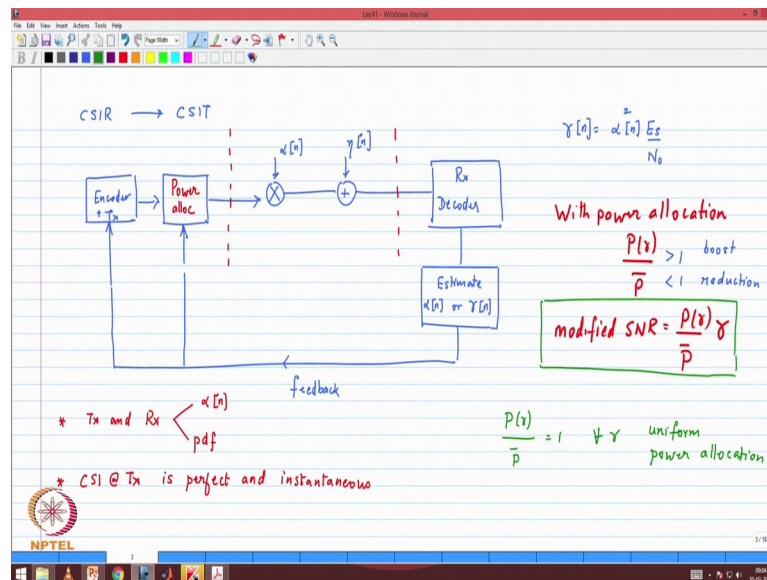 Lec41 - Windows Journal
File Edit View Insert Actions Tools Help
Page Width
B I
CSIR → CSIT
α[n]
η[n]
Encoder + Tx
Power alloc
Rx Decoder
Estimate α[n] or γ[n]
feedback
γ[n] = α²[n] Es/N₀
With power allocation
P(γ)/P̄ >1 boost
<1 reduction
modified SNR = P(γ)/P̄ γ
* Tx and Rx
α[n]
pdf
P(γ)/P̄ = 1 ∀ γ uniform power allocation
* CSI @ Tx is perfect and instantaneous
NPTEL
3
3/16
09:04